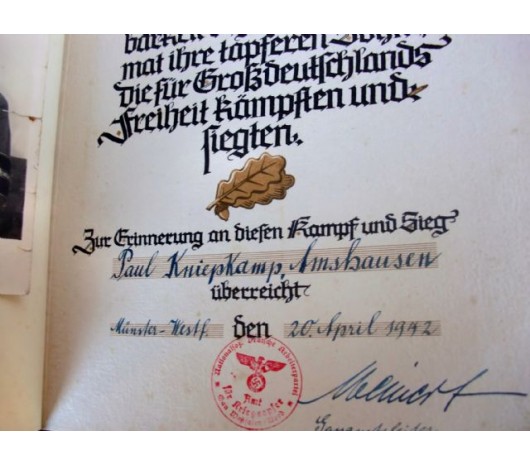 mat ihre tapferen
die für Großdeutschlands
Freiheit kämpften und
siegten.
Zur Erinnerung an diesen Kampf und Sieg
Paul Kniepkamp, Amshausen
überreicht
Münster-Westf. den 20. April 1942
Nationalsoz. Deutsche Arbeiterpartei
Amt
für Kriegsopfer